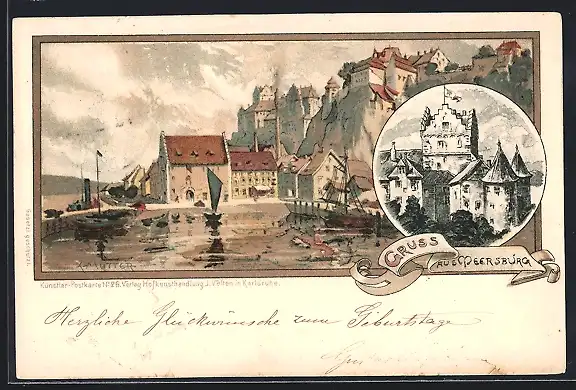 GRUSS
AUS MEERSBURG
Künstler-Postkarte No 26. Verlag Hofkunsthandlung J. Velten in Karlsruhe.
Herzliche Glückwünsche zum Geburtstage